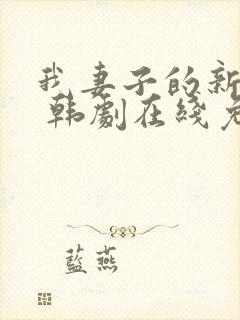 我妻子的新
韩劇在线
藍燕